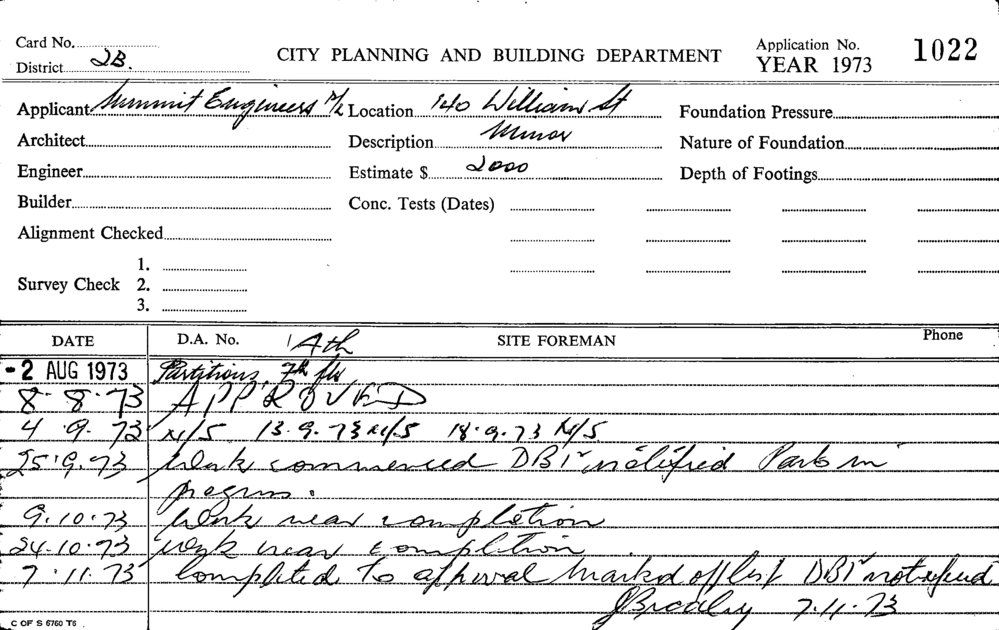 Card No.
District 2B.
CITY PLANNING AND BUILDING DEPARTMENT
Application No. 1022
YEAR 1973
Applicant Summit Engineers P/L Location 140 William St Foundation Pressure
Architect Description Minor Nature of Foundation
Engineer Estimate $ 2000 Depth of Footings
Builder Conc. Tests (Dates)
Alignment Checked
1.
Survey Check 2.
3.
DATE D.A. No. SITE FOREMAN Phone
14th
-2 AUG 1973 Partitions, 7th flr
8.8.73 APPROVED
4.9.73 N/S 13.9.73 N/S 18.9.73 N/S
25.9.73 Work commenced DBI notified Parts in
progress.
9.10.73 Work near completion
24.10.73 Work near completion
7.11.73 Completed to approval marked off list DBI notified
7.11.73
C OF S 6760 T6